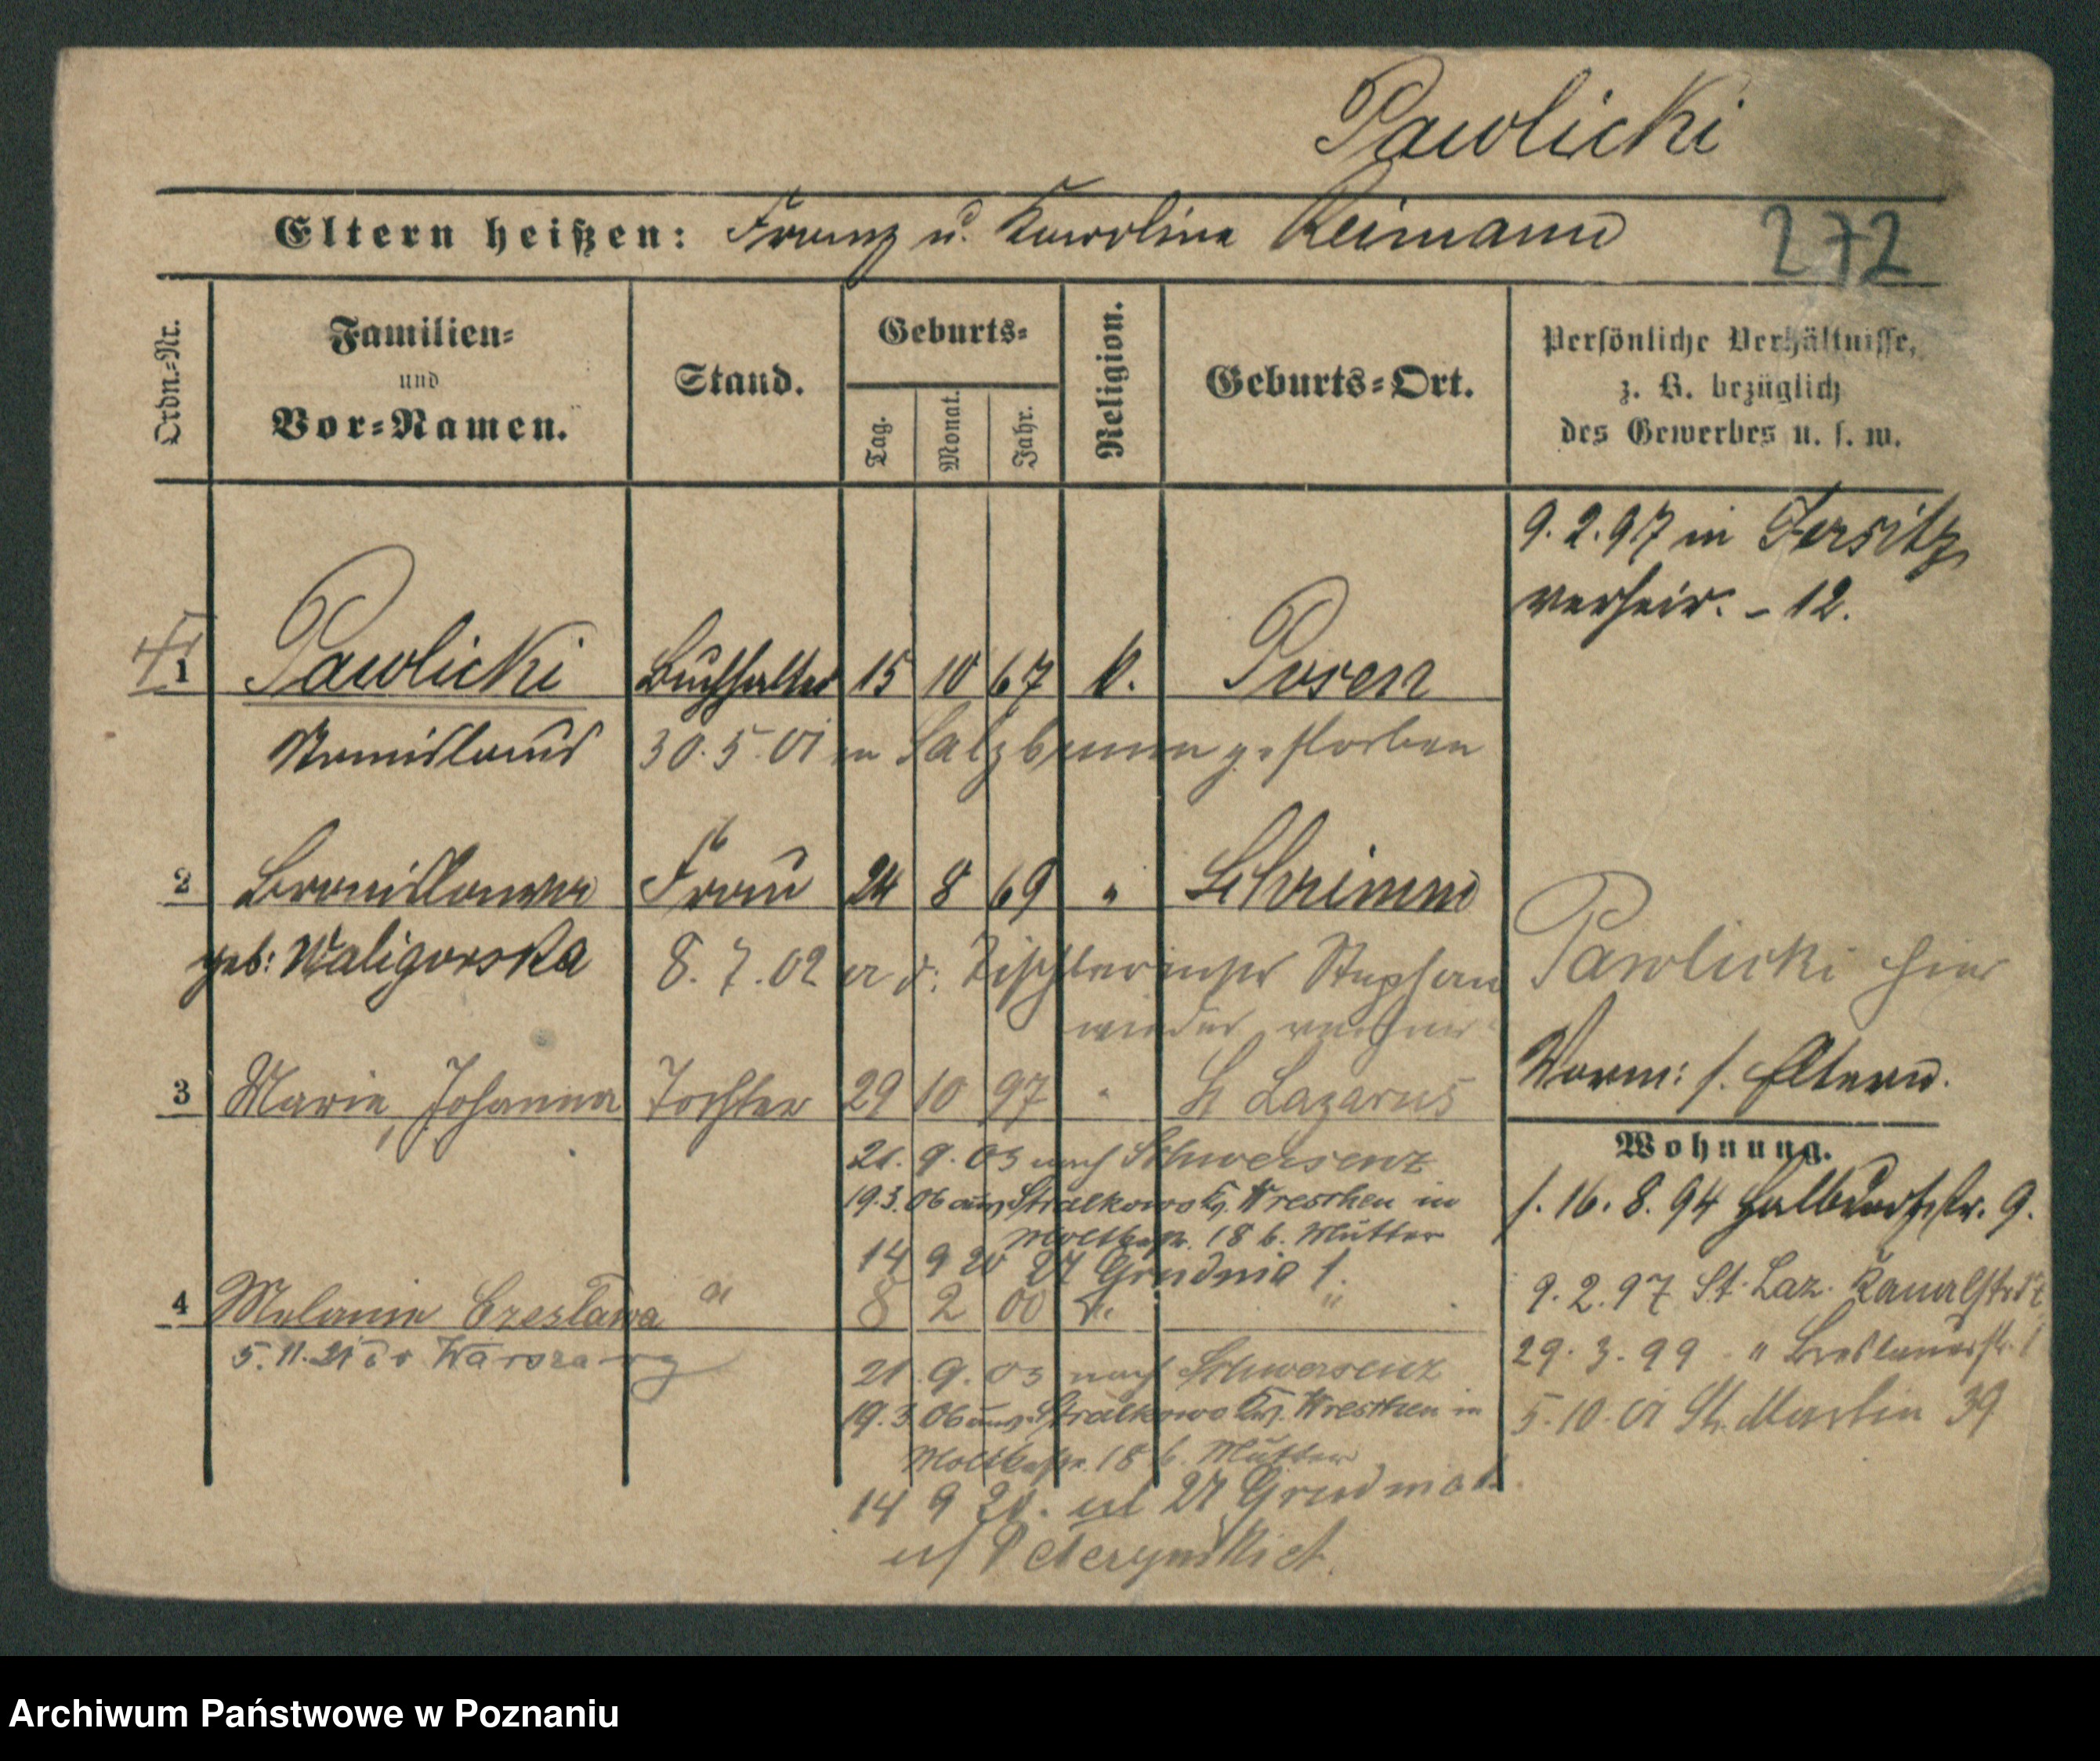 Pawlicki
Eltern heißen: Franz u. Karolina Reimann
272
Ordn.-Nr.
Familien-
und
Vor-Namen.
Stand.
Geburts-
Tag.
Monat.
Jahr.
Religion.
Geburts-Ort.
Persönliche Verhältnisse,
z. B. bezüglich
des Gewerbes u. s. w.
9.2.97 in Jersitz
verheir. - 12.
1 Pawlicki Buchhalter 15 10 67 k. Posen
30.5.01 in Salzbrunn gestorben
2 Bronislawa Frau 24 8 69 " Schrimm
geb: Waligorska 8.7.02 d. Stephan
wieder verheir
Pawlicki hier
Vorm: s. Eltern.
3 Marie, Johanna Tochter 29 10 97 " St Lazarus
21. 9. 03 nach Schwersenz
19.3.06 aus Stralkowo Kr. Wreschen in
Moltkestr. 18 b. Mutter
14 9 20 27 Grudnia 1.
4 Melanie Czesława " 8 2 00 k. "
5.11.21 do Warszawy
21. 9. 03 nach Schwersenz
19.3.06 aus Stralkowo Kr. Wreschen in
Moltkestr. 18 b. Mutter
14 9 20. ul 27 Grudnia 1.
Wohnung.
s. 16. 8. 94 Halbdorfstr. 9.
9.2.97 St. Laz. Kanalstr
29. 3. 99 " Breslauerstr.
5.10.01 St. Martin 39
Archiwum Państwowe w Poznaniu